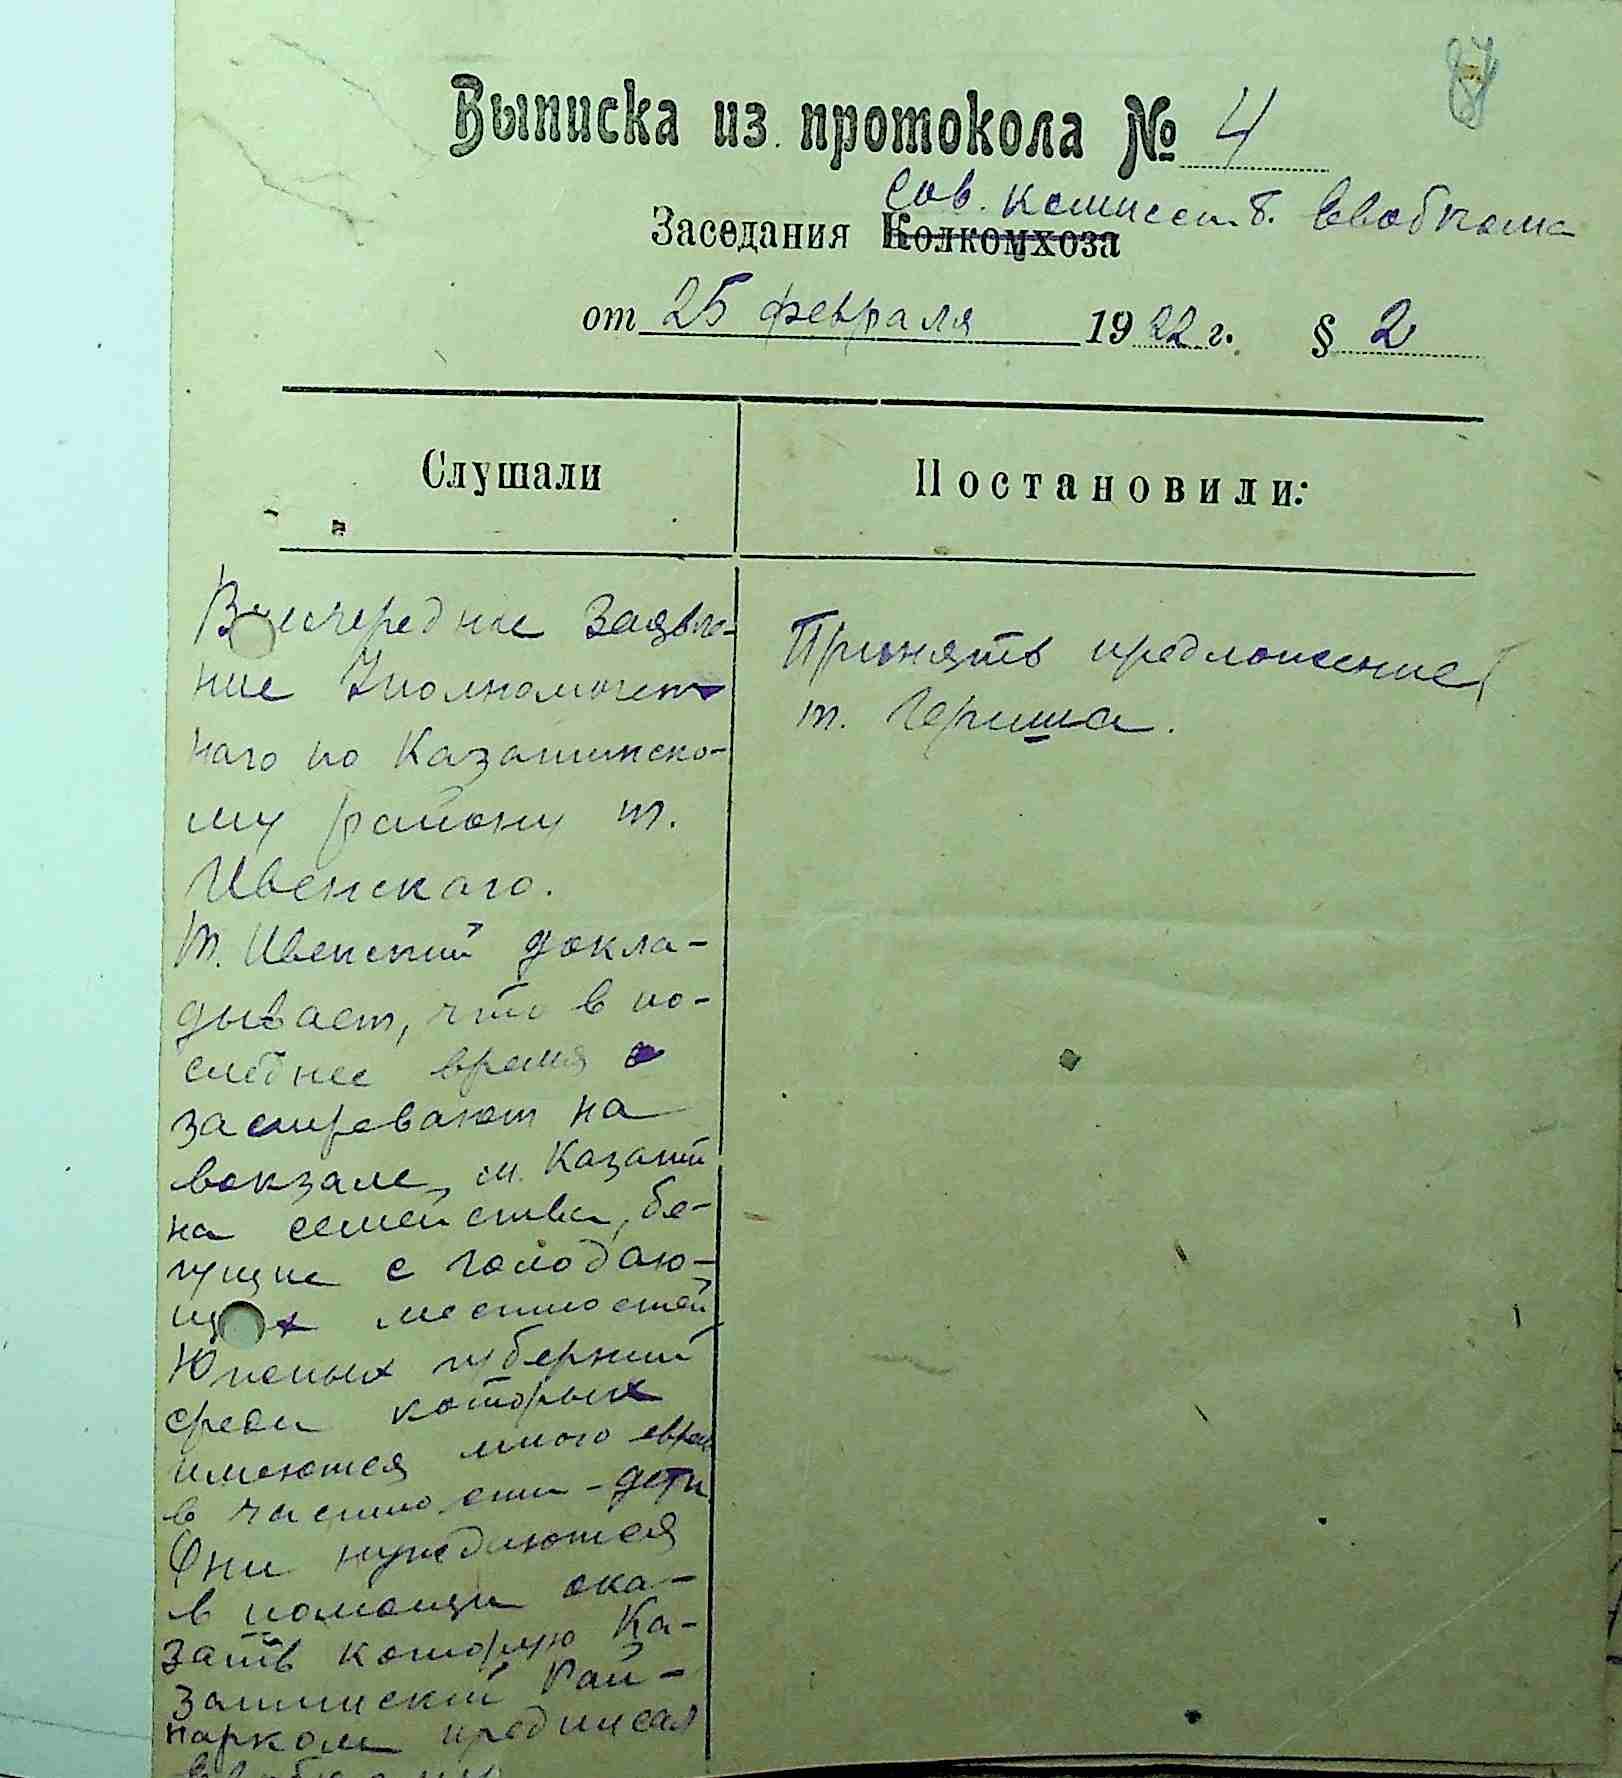 87
Выписка из протокола № 4
Сов. комисст б. Евобкома
Заседания Колкомхоза
от 25 февраля 1922 г. § 2
Слушали
Постановили:
Внеочередное заявле-
ние Уполномочен-
наго по Казатинско-
му району т.
Ивенскаго.
Т. Ивенский докла-
дывает, что в по-
следнее время
застревают на
вокзале м. Казати-
на семейства, бе-
гущие с голодаю-
щих местностей
Южных губерний
среди которых
имеются много евреи
в частности - дети
Они нуждаются
в помощи ока-
зать которую Ка-
затинский Рай-
парком предписал
Принять предложение
т. Герша.